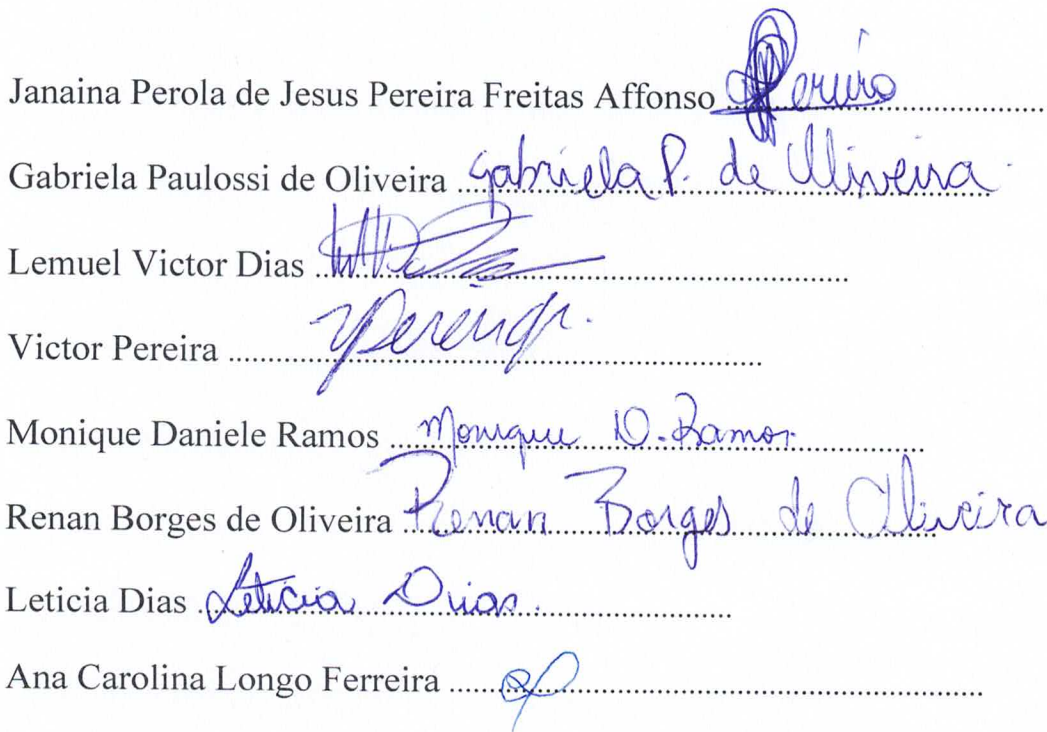 Janaina Perola de Jesus Pereira Freitas Affonso Pereira
Gabriela Paulossi de Oliveira Gabriela P. de Oliveira
Lemuel Victor Dias
Victor Pereira VPereira
Monique Daniele Ramos Monique D. Ramos
Renan Borges de Oliveira Renan Borges de Oliveira
Leticia Dias Leticia Dias
Ana Carolina Longo Ferreira